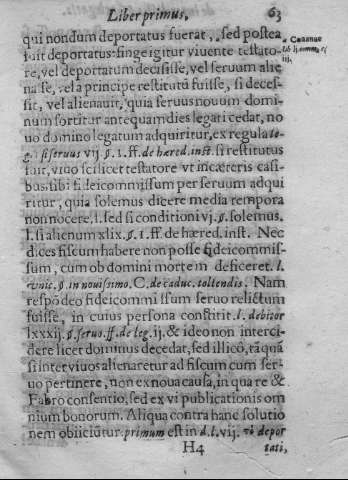 Liber primus, 63
qui nondum deportatus fuerat, sed postea
fuit deportatus: finge igitur viuente testato-
re, vel deportatum decisisse, vel seruum alie
nasse, vel a principe restitutũ fuisse, si deces-
sit, vel alienauit, quia seruus nouum domi-
num sortitur antequam dies legati cedat, no
uo domino legatum adquiritur, ex regula to-
g. si seruus vij. ꝭ. 1. ff. de hæred. inst. si restitutus
fuit, viuo scilicet testatore vt in cæteris casi-
bus tibi fideicommissum per seruum adqui
ritur, quia solemus dicere media tempora
non nocere, l. sed si conditioni vj. ꝭ. solemus.
l. si alienum xlix. ꝭ. 1. ff. de hæred. inst. Nec
dices fiscum habere non posse fideicommis-
sum, cum ob domini mortem deficeret. l.
vnic. ꝭ. in nouissimo. C. de caduc. tollendis. Nam
respõdeo fideicommissum seruo relictum
fuisse, in cuius persona constitit l. debitor
lxxxij. ꝭ. seruo. ff. de leg. ij. & ideo non interci-
dere licet dominus decedat, sed illicô, tãquã
si inter viuos alienaretur ad fiscum cum ser-
uo pertinere, non ex noua causa, in qua re &
Fabro consentio, sed ex vi publicationis om
nium bonorum. Aliqua contra hanc solutio
nem obiiciũtur. primum est in d. l. vij. vi depor
H4 tati,